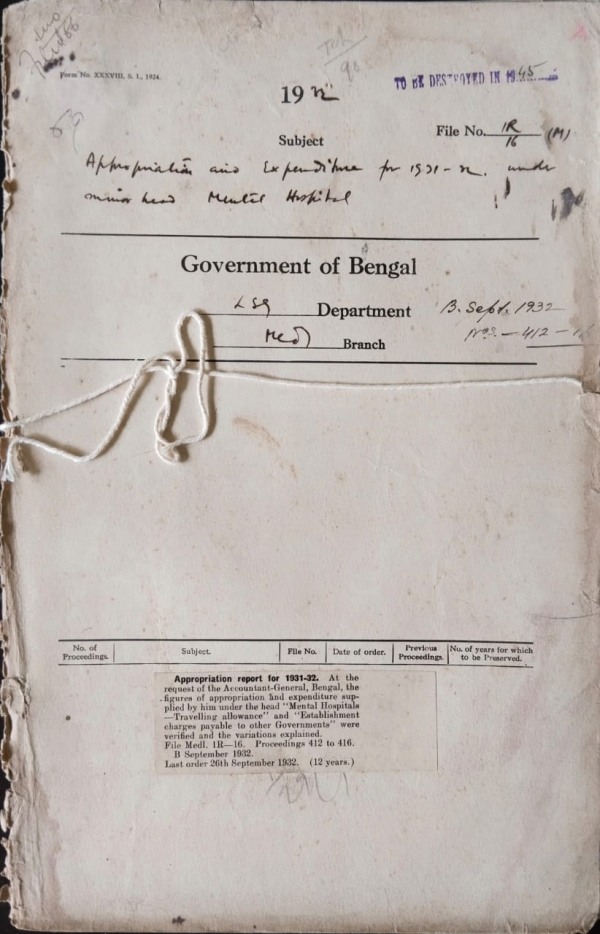 Form No. XXXVIII, S. I., 1924.
TO BE DESTROYED IN 1945
1932
File No. 1R/16 (M)
Subject
Appropriation and Expenditure for 1931-32. under
minor head Mental Hospital
Government of Bengal
LSG Department
B. Sept. 1932
Medl Branch
Nos - 412 - 16
No. of Proceedings.
Subject.
File No.
Date of order.
Previous Proceedings.
No. of years for which to be Preserved.
Appropriation report for 1931-32. At the
request of the Accountant-General, Bengal, the
figures of appropriation and expenditure sup-
plied by him under the head "Mental Hospitals
—Travelling allowance" and "Establishment
charges payable to other Governments" were
verified and the variations explained.
File Medl. 1R—16. Proceedings 412 to 416.
B September 1932.
Last order 26th September 1932. (12 years.)